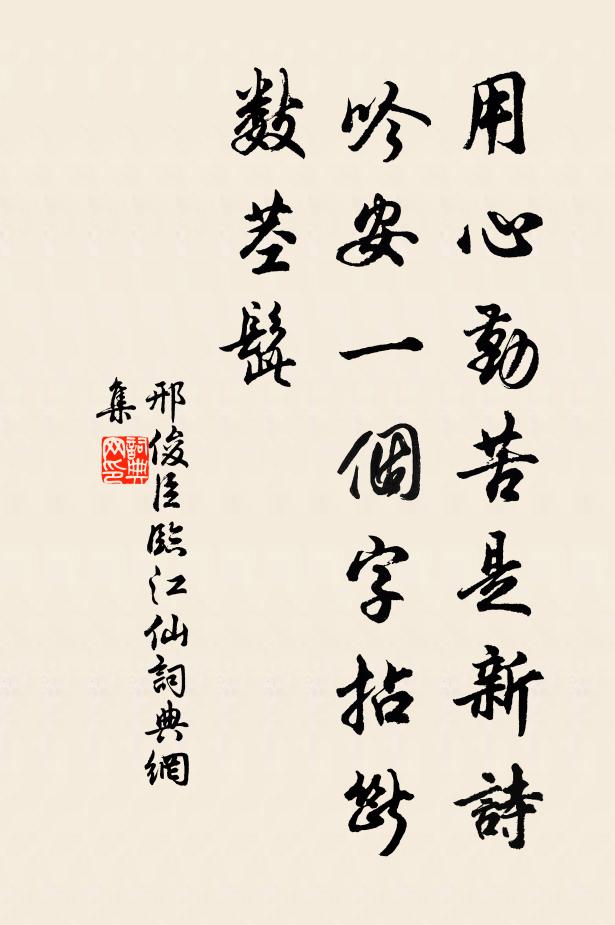 用心勤苦是新詩
吟安一個字拈斷
數莖髭
邢俊臣臨江仙詞典網
集
詞典網印